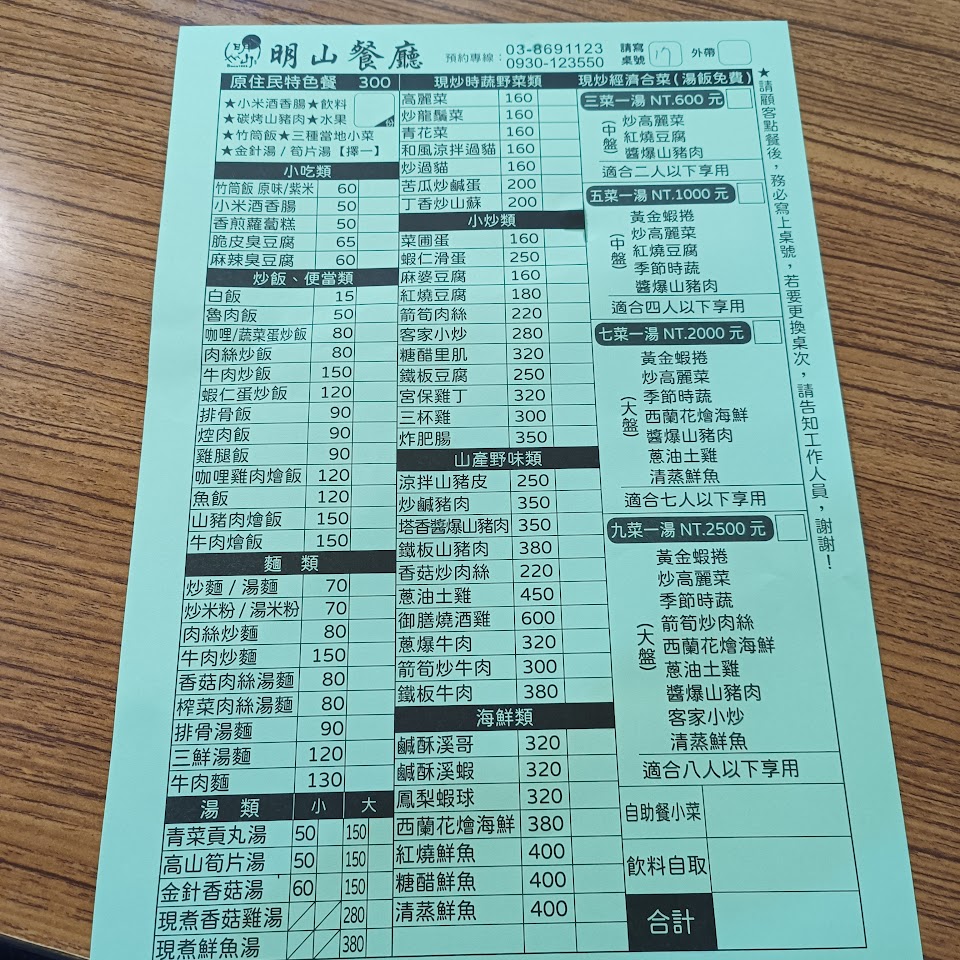 明山餐廳
預約專線：03-8691123
0930-123550
請寫桌號 17
外帶
原住民特色餐 300
★小米酒香腸★飲料
★碳烤山豬肉★水果
★竹筒飯★三種當地小菜
★金針湯/筍片湯【擇一】
份
小吃類
竹筒飯 原味/紫米 60
小米酒香腸 50
香煎蘿蔔糕 50
脆皮臭豆腐 65
麻辣臭豆腐 60
炒飯、便當類
白飯 15
魯肉飯 50
咖哩/蔬菜蛋炒飯 80
肉絲炒飯 80
牛肉炒飯 150
蝦仁蛋炒飯 120
排骨飯 90
焢肉飯 90
雞腿飯 90
咖哩雞肉燴飯 120
魚飯 120
山豬肉燴飯 150
牛肉燴飯 150
麵 類
炒麵/湯麵 70
炒米粉/湯米粉 70
肉絲炒麵 80
牛肉炒麵 150
香菇肉絲湯麵 80
榨菜肉絲湯麵 80
排骨湯麵 90
三鮮湯麵 120
牛肉麵 130
湯 類 小 大
青菜貢丸湯 50 150
高山筍片湯 50 150
金針香菇湯 60 150
現煮香菇雞湯 280
現煮鮮魚湯 380
現炒時蔬野菜類
高麗菜 160
炒龍鬚菜 160
青花菜 160
和風涼拌過貓 160
炒過貓 160
苦瓜炒鹹蛋 200
丁香炒山蘇 200
小炒類
菜圃蛋 160
蝦仁滑蛋 250
麻婆豆腐 160
紅燒豆腐 180
箭筍肉絲 220
客家小炒 280
糖醋里肌 320
鐵板豆腐 250
宮保雞丁 320
三杯雞 300
炸肥腸 350
山產野味類
涼拌山豬皮 250
炒鹹豬肉 350
塔香醬爆山豬肉 350
鐵板山豬肉 380
香菇炒肉絲 220
蔥油土雞 450
御膳燒酒雞 600
蔥爆牛肉 320
箭筍炒牛肉 300
鐵板牛肉 380
海鮮類
鹹酥溪哥 320
鹹酥溪蝦 320
鳳梨蝦球 320
西蘭花燴海鮮 380
紅燒鮮魚 400
糖醋鮮魚 400
清蒸鮮魚 400
現炒經濟合菜(湯飯免費)
三菜一湯 NT.600 元
(中盤)
炒高麗菜
紅燒豆腐
醬爆山豬肉
適合二人以下享用
五菜一湯 NT.1000 元
(中盤)
黃金蝦捲
炒高麗菜
紅燒豆腐
季節時蔬
醬爆山豬肉
適合四人以下享用
七菜一湯 NT.2000 元
(大盤)
黃金蝦捲
炒高麗菜
季節時蔬
西蘭花燴海鮮
醬爆山豬肉
蔥油土雞
清蒸鮮魚
適合七人以下享用
九菜一湯 NT.2500 元
(大盤)
黃金蝦捲
炒高麗菜
季節時蔬
箭筍炒肉絲
西蘭花燴海鮮
蔥油土雞
醬爆山豬肉
客家小炒
清蒸鮮魚
適合八人以下享用
自助餐小菜
飲料自取
合計
★請顧客點餐後，務必寫上桌號，若要更換桌次，請告知工作人員，謝謝！